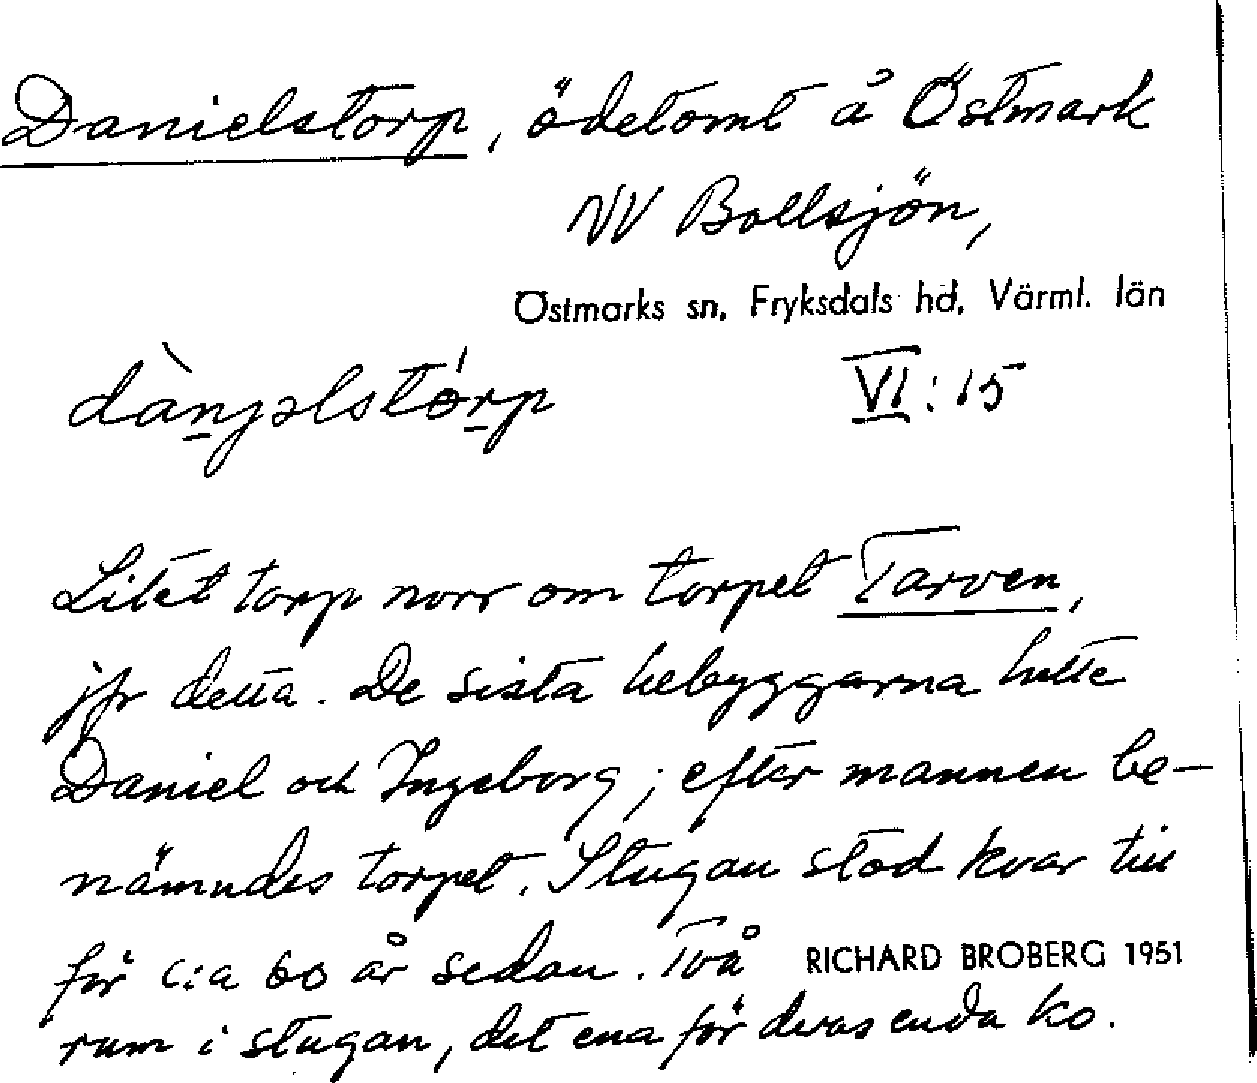 Danielstorp, ödetomt å Östmark
NV Bollsjön,
Östmarks sn, Fryksdals hd, Värml. län
dànjəlstórp VI:15
Litet torp norr om torpet Tarven,
jfr detta. De sista bebyggarna hette
Daniel och Ingeborg; efter mannen be-
nämndes torpet. Stugan stod kvar till
för c:a 60 år sedan. Två
RICHARD BROBERG 1951
rum i stugan, det ena för deras enda ko.